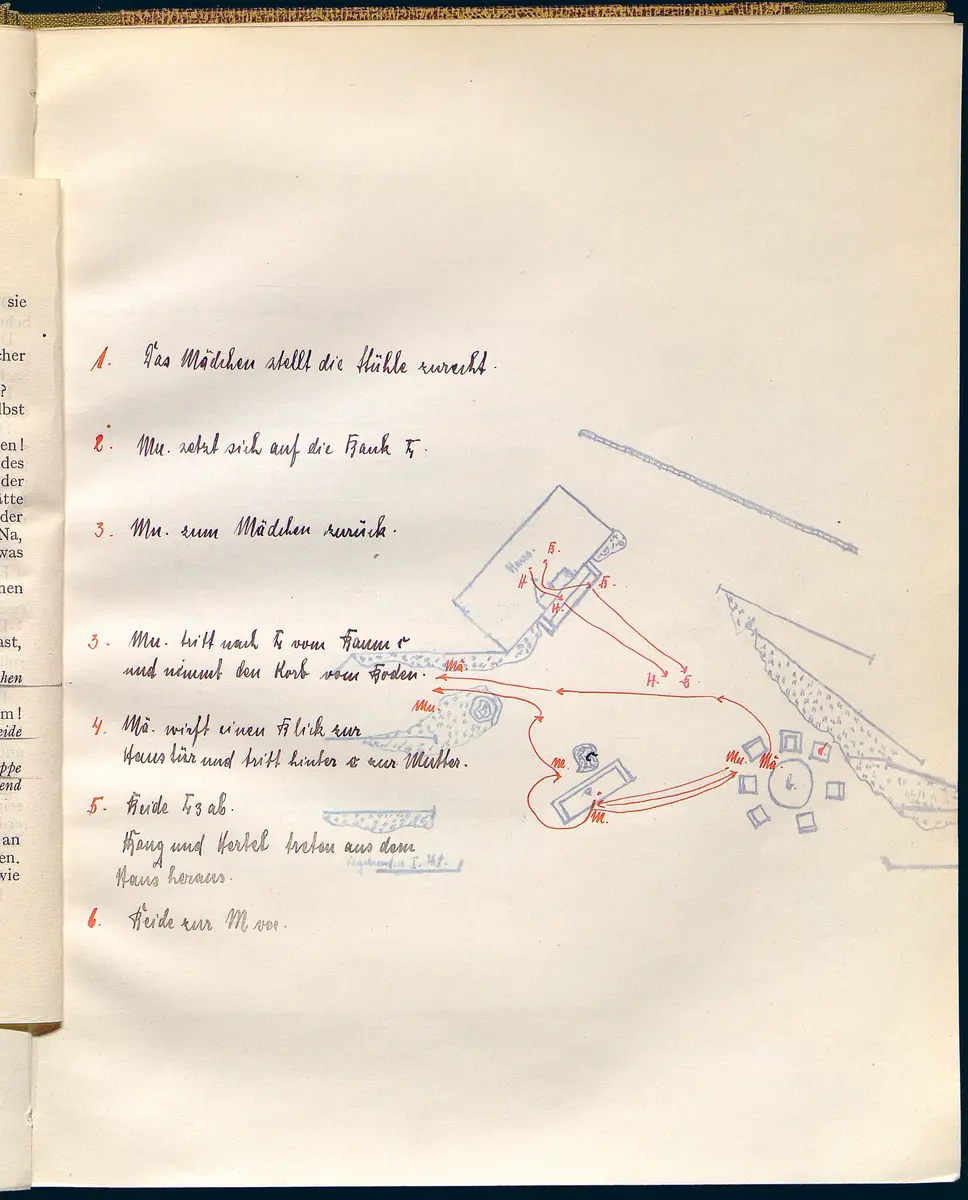 sie
cher
?
lbst
en!
des
der
ätte
der
Na,
was
hen
ast,
hen
m!
eide
ppe
end
an
en.
wie
1. Das Mädchen stellt die Stühle zurecht.
2. Mu. setzt sich auf die Bank
3. Mu. zum Mädchen zurück.
3. Mu. tritt nach vom Baum c
und nimmt den Korb vom Boden.
4. Mä. wirft einen Blick zur
Haustür und tritt hinter c zur Mutter.
5. Beide ab.
und Hertel treten aus dem
Haus heraus.
6. Beide zur M vor.
Haus.
B.
H.
B.
H.
H. B.
Mä.
Mu.
m.
c
a.
m.
Mu. Mä.
d.
b.
I. Akt.